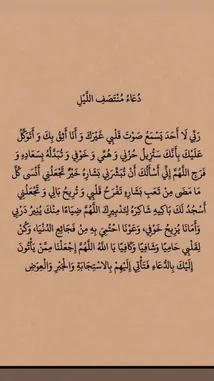 دُعَاءُ مُنْتَصَفِ اللَّيْلِ
رَبِّي لَا أَحَد يَسْمَعُ صَوْتَ قَلْبِي غَيْرَكَ وَ أَنَا أَثِقُ بِكَ وَ أَتَوَكَّلُ
عَلَيْكَ بِأَنَّكَ سَتُزِيلُ حُزْنِي وَ هَمِّي وَ خَوْفِي وَ تُبَدِّلُهُ بِسَعَادِهِ وَ
فَرَجِ اللَّهُمَّ إِنِّي أَسْأَلُكَ أَنْ تُبَشِّرَنِي بَشَارِهُ خَيْرٌ تَجْعَلُنِي أَنْسَى كُلَّ
مَا مَضَى مِنْ تَعَبٍ بَشَارِهِ تَفْرَحُ قَلْبِي وَ تُرِيحُ بَالِي وَ تَجْعَلُنِي
أَسْجُدُ لَكَ بَاكِيهِ شَاكِرَهُ لِتَدْبِيرِكَ اللَّهُمَّ ضِيَاءًا مِنْكَ يُنِيرُ دَرْبِي
وَأَمَانَا يُزِيحُ خَوْفِي، وَعَوْنَا احْتَمِيَ بِهِ مِنْ فَجَائِعِ الدُّنْيَا، وَكُنْ
لِقَلْبِي حَامِيَا وَشَافِيَا وَكَافِيَا يَا اللهُ اللَّهُمَّ إِجْعَلْنَا مِمَّنْ يَأْتُونَ
إِلَيْكَ بِالدُّعَاءِ فَتَأْتِي إِلَيْهِمْ بِالِاسْتِجَابَةِ وَالْجَبْرِ وَالْعِوَضِ